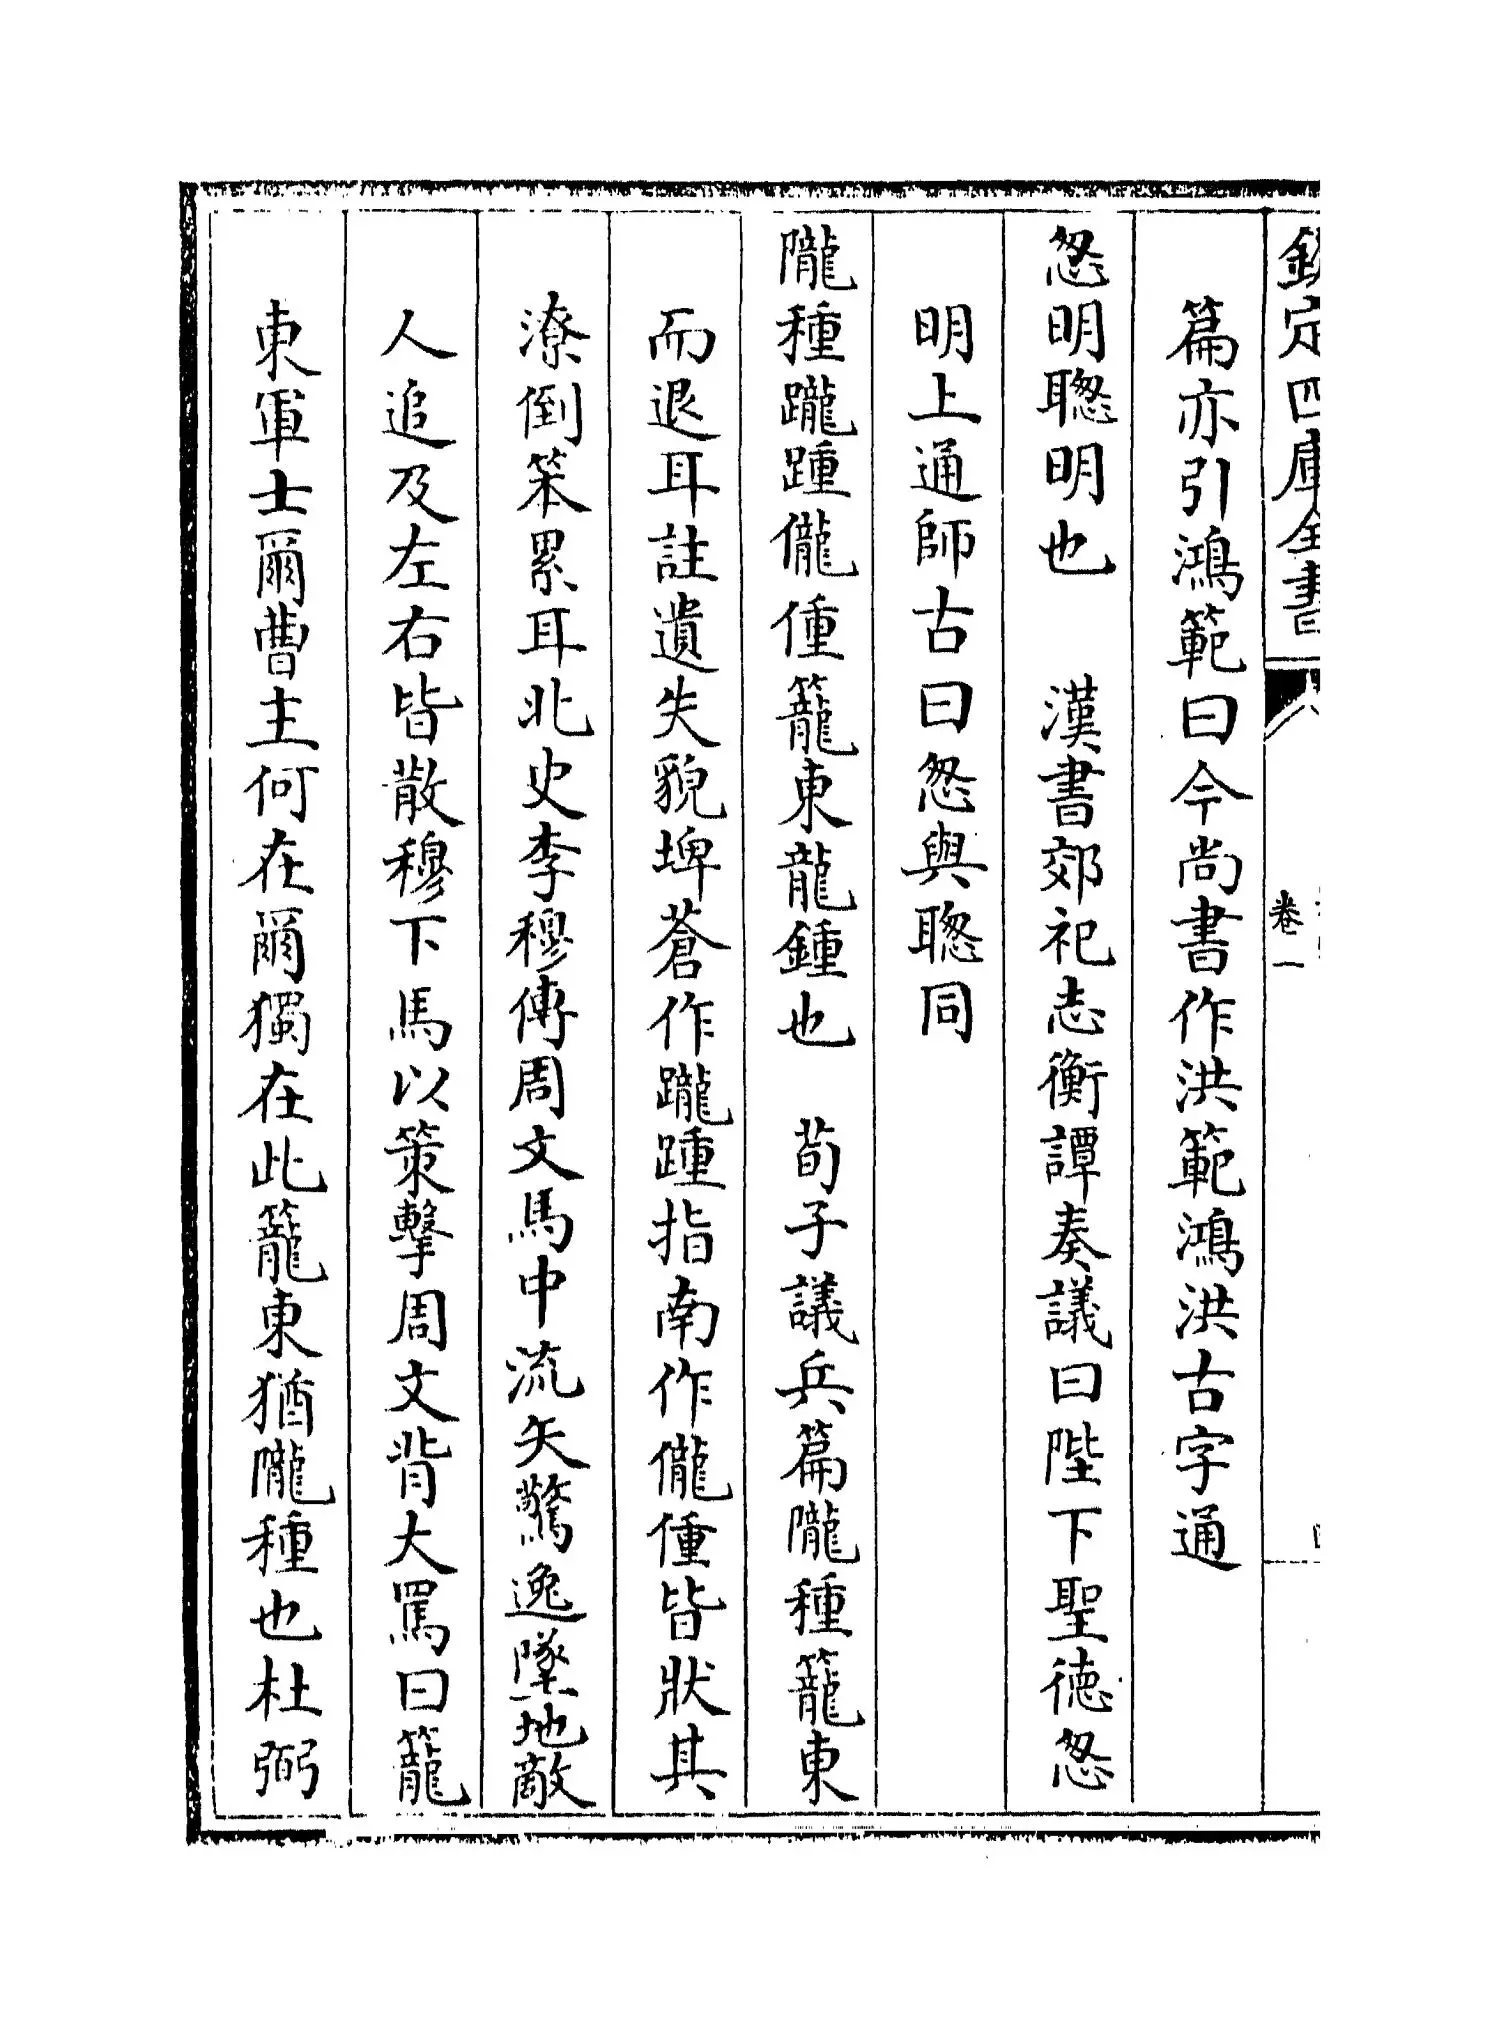 欽定四庫全書
卷一
篇亦引鴻範曰今尚書作洪範鴻洪古字通
怱明聰明也　漢書郊祀志衡譚奏議曰陛下聖德怱
明上通師古曰怱與聰同
隴種躘踵儱偅籠東龍鍾也　荀子議兵篇隴種籠東
而退耳註遺失貌埤蒼作躘踵指南作儱偅皆狀其
潦倒笨累耳北史李穆傳周文馬中流矢驚逸墜地敵
人追及左右皆散穆下馬以策擊周文背大罵曰籠
東軍士爾曹主何在爾獨在此籠東猶隴種也杜弼